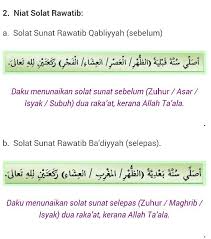 2. Niat Solat Rawatib:
a. Solat Sunat Rawatib Qabliyyah (sebelum)
أُصَلِّي سُنَّةَ قَبْلِيَّةَ (الظُّهْرِ/ الْعَصْرِ/ الْعِشَاءِ/ الْفَجْرِ) رَكْعَتَيْنِ لِلهِ تَعَالَى.
Daku menunaikan solat sunat sebelum (Zuhur / Asar /
Isyak / Subuh) dua raka'at, kerana Allah Ta'ala.
.
b. Solat Sunat Rawatib Ba'diyyah (selepas).
أُصَلِّي سُنَّةَ بَعْدِيَّةَ (الظُّهْرِ/ الْمَغْرِبِ / الْعِشَاءِ) رَكْعَتَيْنِ لِلهِ تَعَالَى.
Daku menunaikan solat sunat selepas (Zuhur / Maghrib /
Isyak) dua raka'at, kerana Allah Ta'ala.
.